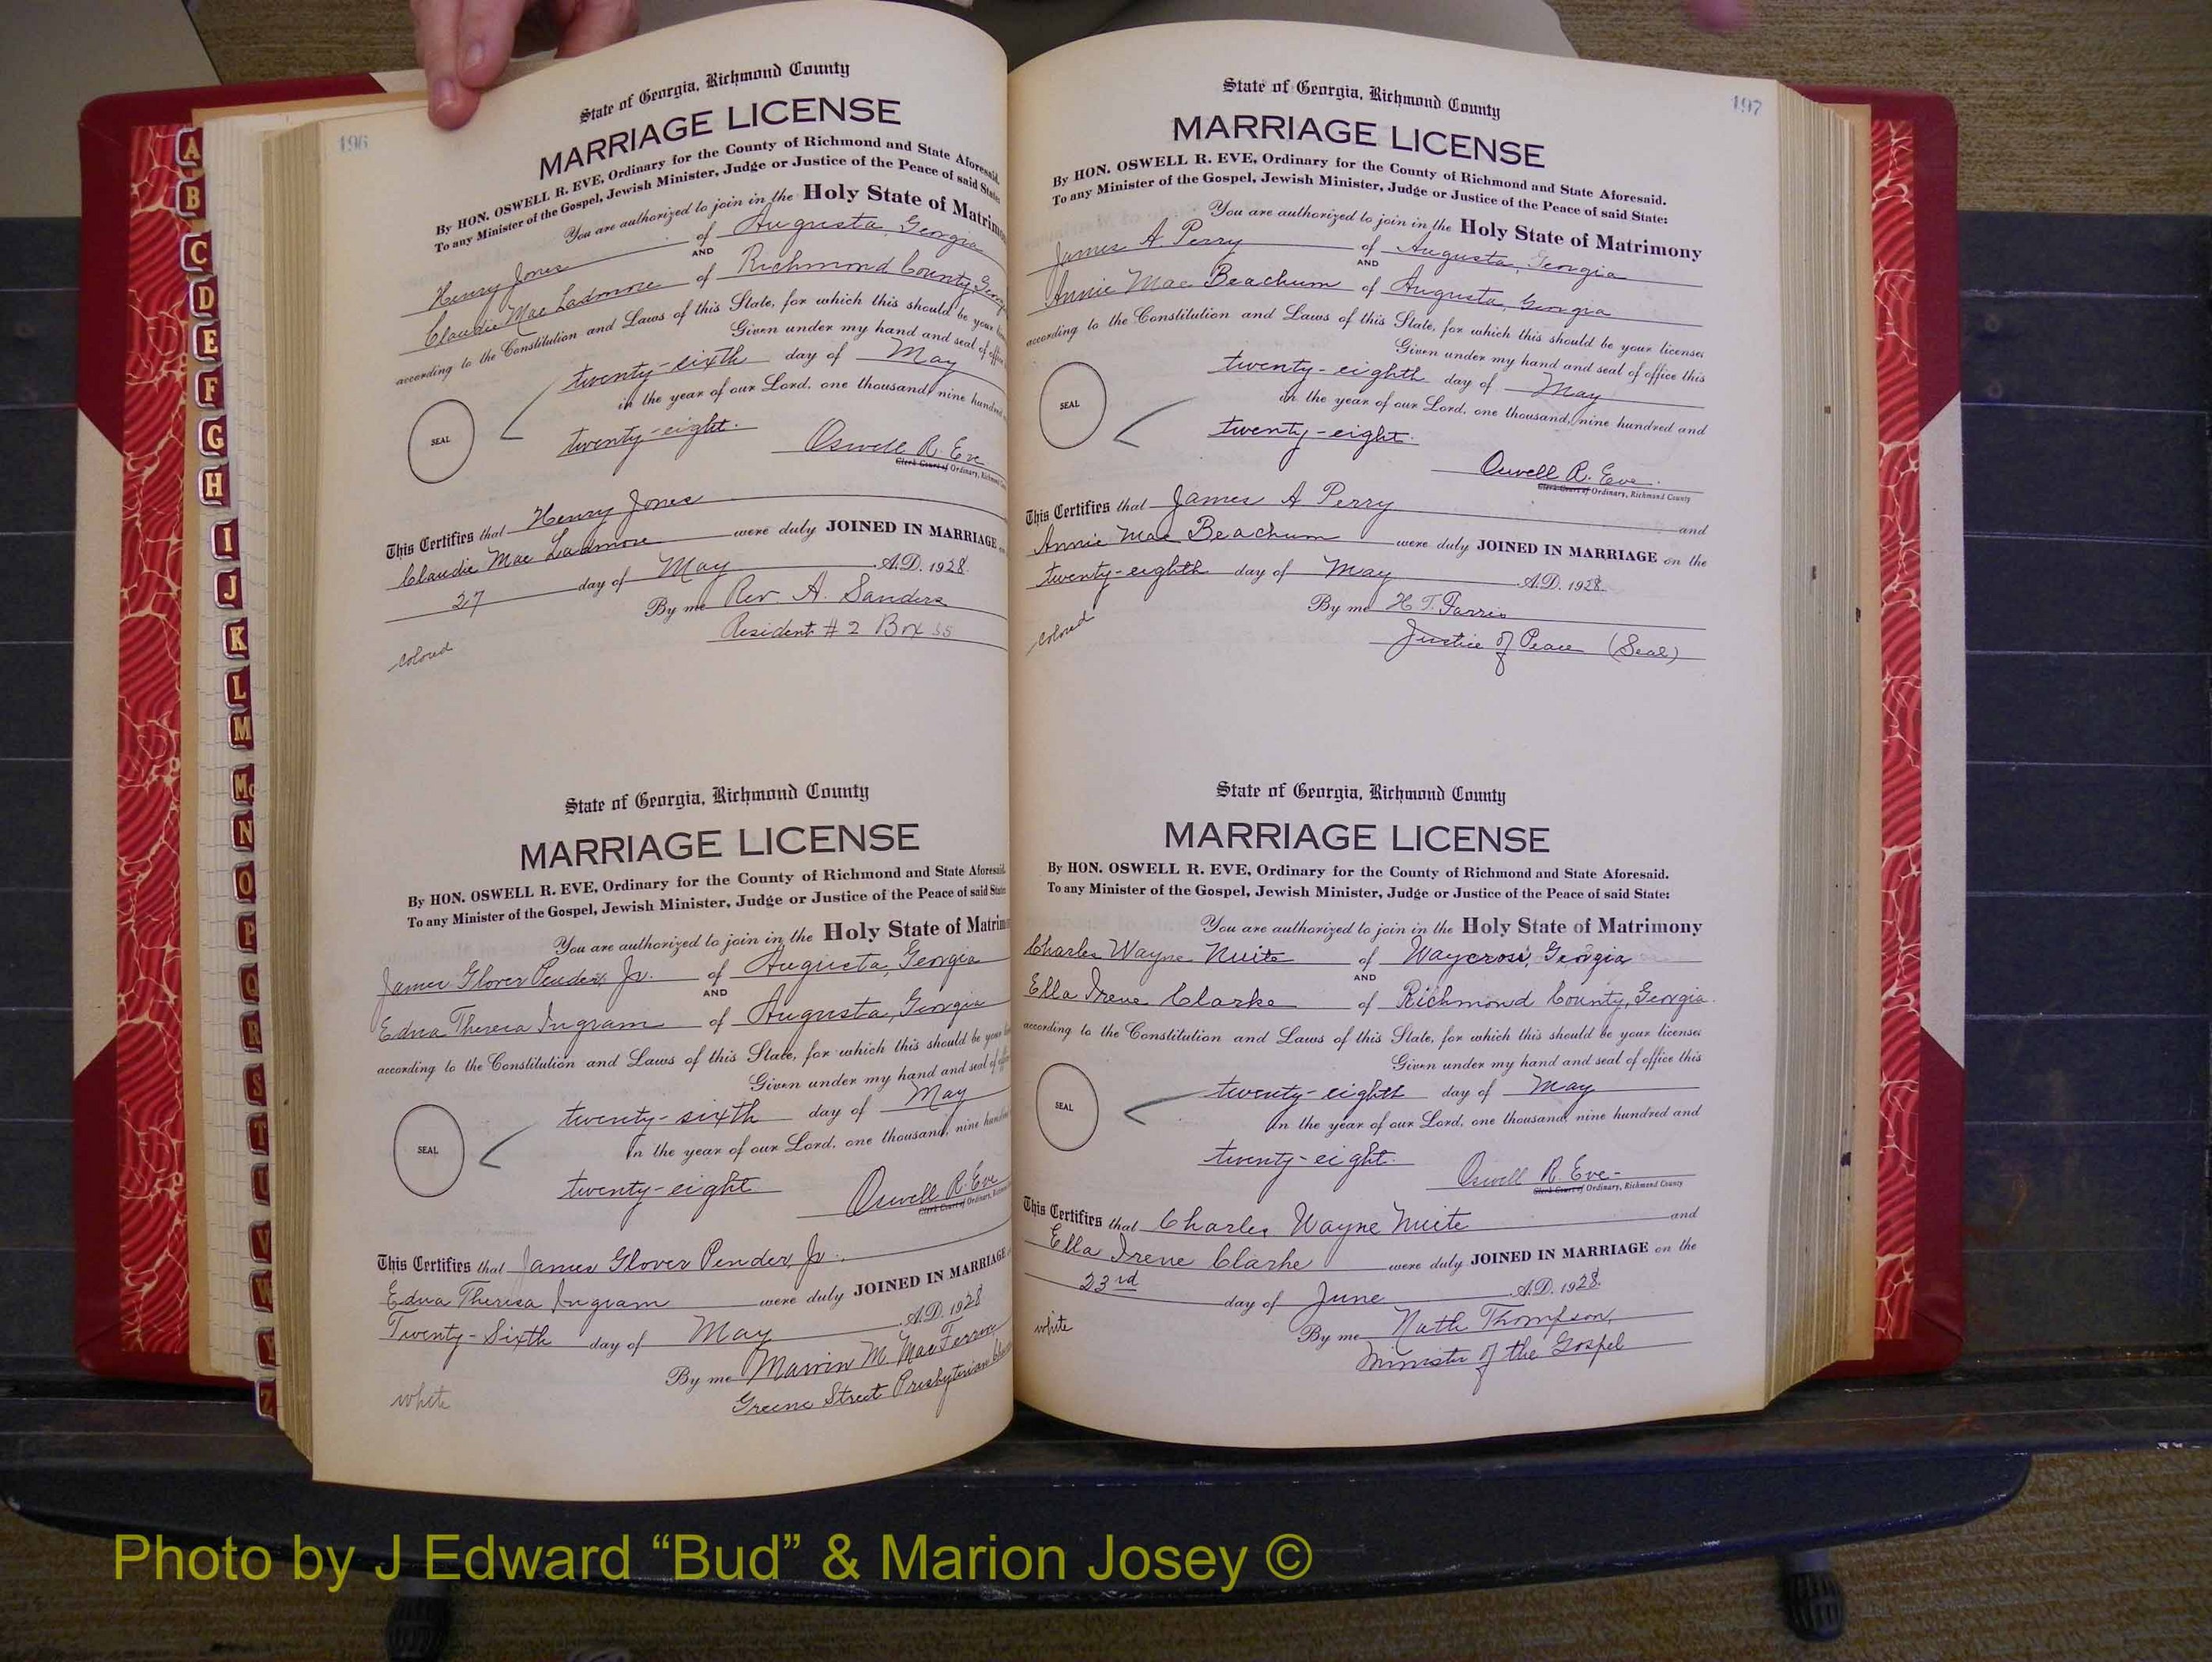 196
State of Georgia, Richmond County
MARRIAGE LICENSE
By HON. OSWELL R. EVE, Ordinary for the County of Richmond and State Aforesaid.
To any Minister of the Gospel, Jewish Minister, Judge or Justice of the Peace of said State:
You are authorized to join in the Holy State of Matrimo
Henry Jones of Augusta, Georgia
AND
Claudie Mae Ladmore of Richmond County, Georg
according to the Constitution and Laws of this State, for which this should be your
Given under my hand and seal of office
twenty-sixth day of May
in the year of our Lord, one thousand, nine hundred
SEAL
twenty-eight.
Oswell R. Eve
Clerk Court of Ordinary, Richmond
This Certifies that Henry Jones
Claudie Mae Ladmore were duly JOINED IN MARRIAGE on
27 day of May A.D. 1928.
By me Rev. A. Sanders
Resident # 2 Box 35
colored
State of Georgia, Richmond County
MARRIAGE LICENSE
By HON. OSWELL R. EVE, Ordinary for the County of Richmond and State Aforesaid.
To any Minister of the Gospel, Jewish Minister, Judge or Justice of the Peace of said State
You are authorized to join in the Holy State of Matrim
James Glover Pender, Jr. of Augusta, Georgia
AND
Edna Theresa Ingram of Augusta, Georgia
according to the Constitution and Laws of this State, for which this should be your
Given under my hand and seal of
twenty-sixth day of May
in the year of our Lord, one thousand, nine hund
SEAL
twenty-eight
Oswell R. Eve
Clerk Court of Ordinary, Rich
This Certifies that James Glover Pender, Jr.
Edna Theresa Ingram were duly JOINED IN MARRIAGE
Twenty-Sixth day of May A.D. 1928
By me M. Mac
Greene Street Presbyterian
white
197
State of Georgia, Richmond County
MARRIAGE LICENSE
By HON. OSWELL R. EVE, Ordinary for the County of Richmond and State Aforesaid.
To any Minister of the Gospel, Jewish Minister, Judge or Justice of the Peace of said State:
You are authorized to join in the Holy State of Matrimony
James A. Perry of Augusta, Georgia
AND
Annie Mae Beachum of Augusta, Georgia
according to the Constitution and Laws of this State, for which this should be your license;
Given under my hand and seal of office this
twenty-eighth day of May
in the year of our Lord, one thousand, nine hundred and
SEAL
twenty-eight.
Oswell R. Eve.
Clerk Court of Ordinary, Richmond County
This Certifies that James A Perry and
Annie Mae Beachum were duly JOINED IN MARRIAGE on the
twenty-eighth day of May A.D. 1928.
By me H. T. Farris
Justice of Peace (Seal)
colored
State of Georgia, Richmond County
MARRIAGE LICENSE
By HON. OSWELL R. EVE, Ordinary for the County of Richmond and State Aforesaid.
To any Minister of the Gospel, Jewish Minister, Judge or Justice of the Peace of said State:
You are authorized to join in the Holy State of Matrimony
Charles Wayne Nuite of Waycross, Georgia
AND
Ella Irene Clarke of Richmond County, Georgia.
according to the Constitution and Laws of this State, for which this should be your license;
Given under my hand and seal of office this
twenty-eighth day of May
in the year of our Lord, one thousand, nine hundred and
SEAL
twenty-eight.
Oswell R. Eve-
Clerk Court of Ordinary, Richmond County
This Certifies that Charles Wayne Nuite and
Ella Irene Clarke were duly JOINED IN MARRIAGE on the
23rd day of June A.D. 1928.
By me Nath Thompson,
Minister of the Gospel
white
A
B
C
D
E
F
G
H
I
J
K
L
M
Mc
N
O
P
Q
R
S
T
U
V
W
Y
Z
Photo by J Edward “Bud” & Marion Josey ©